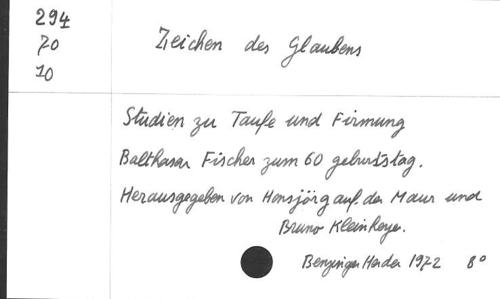 294
70
10
Zeichen des Glaubens
Studien zu Taufe und Firmung
Balthasar Fischer zum 60 geburtstag.
Herausgegeben von Hansjörg auf. der Maur und
Bruno Kleinheye.
Benzinger Herder 1972 8°